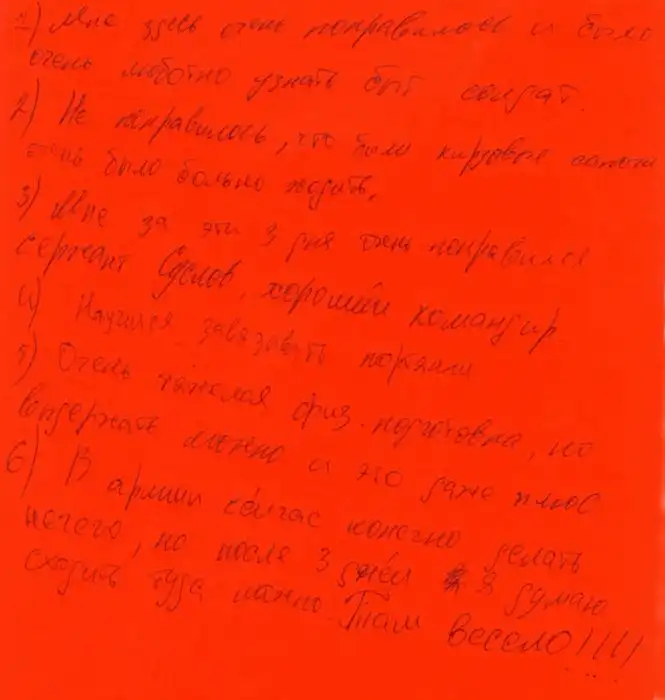 1) Мне здесь очень понравилось и было
очень любопно узнать быт солдат.
2) Не понравилось, что были кирзовые сапоги
очень было больно ходить,
3) Мне за эти 3 дня очень понравился
сержант Суслов, хороший командир
4) Научился завязывать портянки
5) Очень тяжелая физ. подготовка, но
выдержать можно и это даже плюс
6) В армии сейчас конечно делать
нечего, но после 3 дней я думаю
сходить туда можно. Там весело!!!!